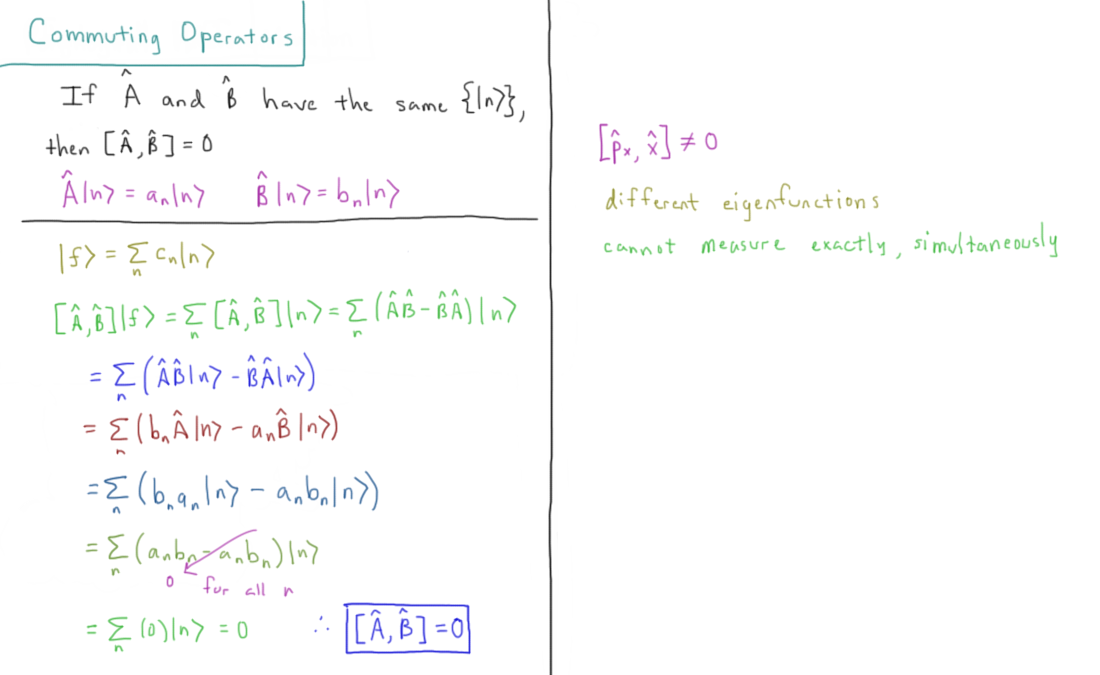 Commuting Operators
If Â and B̂ have the same {|n⟩},
then [Â,B̂] = 0
Â|n⟩ = aₙ|n⟩ B̂|n⟩ = bₙ|n⟩
|f⟩ = Σₙ cₙ|n⟩
[Â,B̂]|f⟩ = Σₙ [Â,B̂]|n⟩ = Σₙ (ÂB̂ - B̂Â)|n⟩
= Σₙ (ÂB̂|n⟩ - B̂Â|n⟩)
= Σₙ (bₙÂ|n⟩ - aₙB̂|n⟩)
= Σₙ (bₙaₙ|n⟩ - aₙbₙ|n⟩)
= Σₙ (aₙbₙ - aₙbₙ)|n⟩
0 for all n
= Σₙ (0)|n⟩ = 0 ∴ [Â,B̂] = 0
[p̂ₓ, x̂] ≠ 0
different eigenfunctions
cannot measure exactly, simultaneously